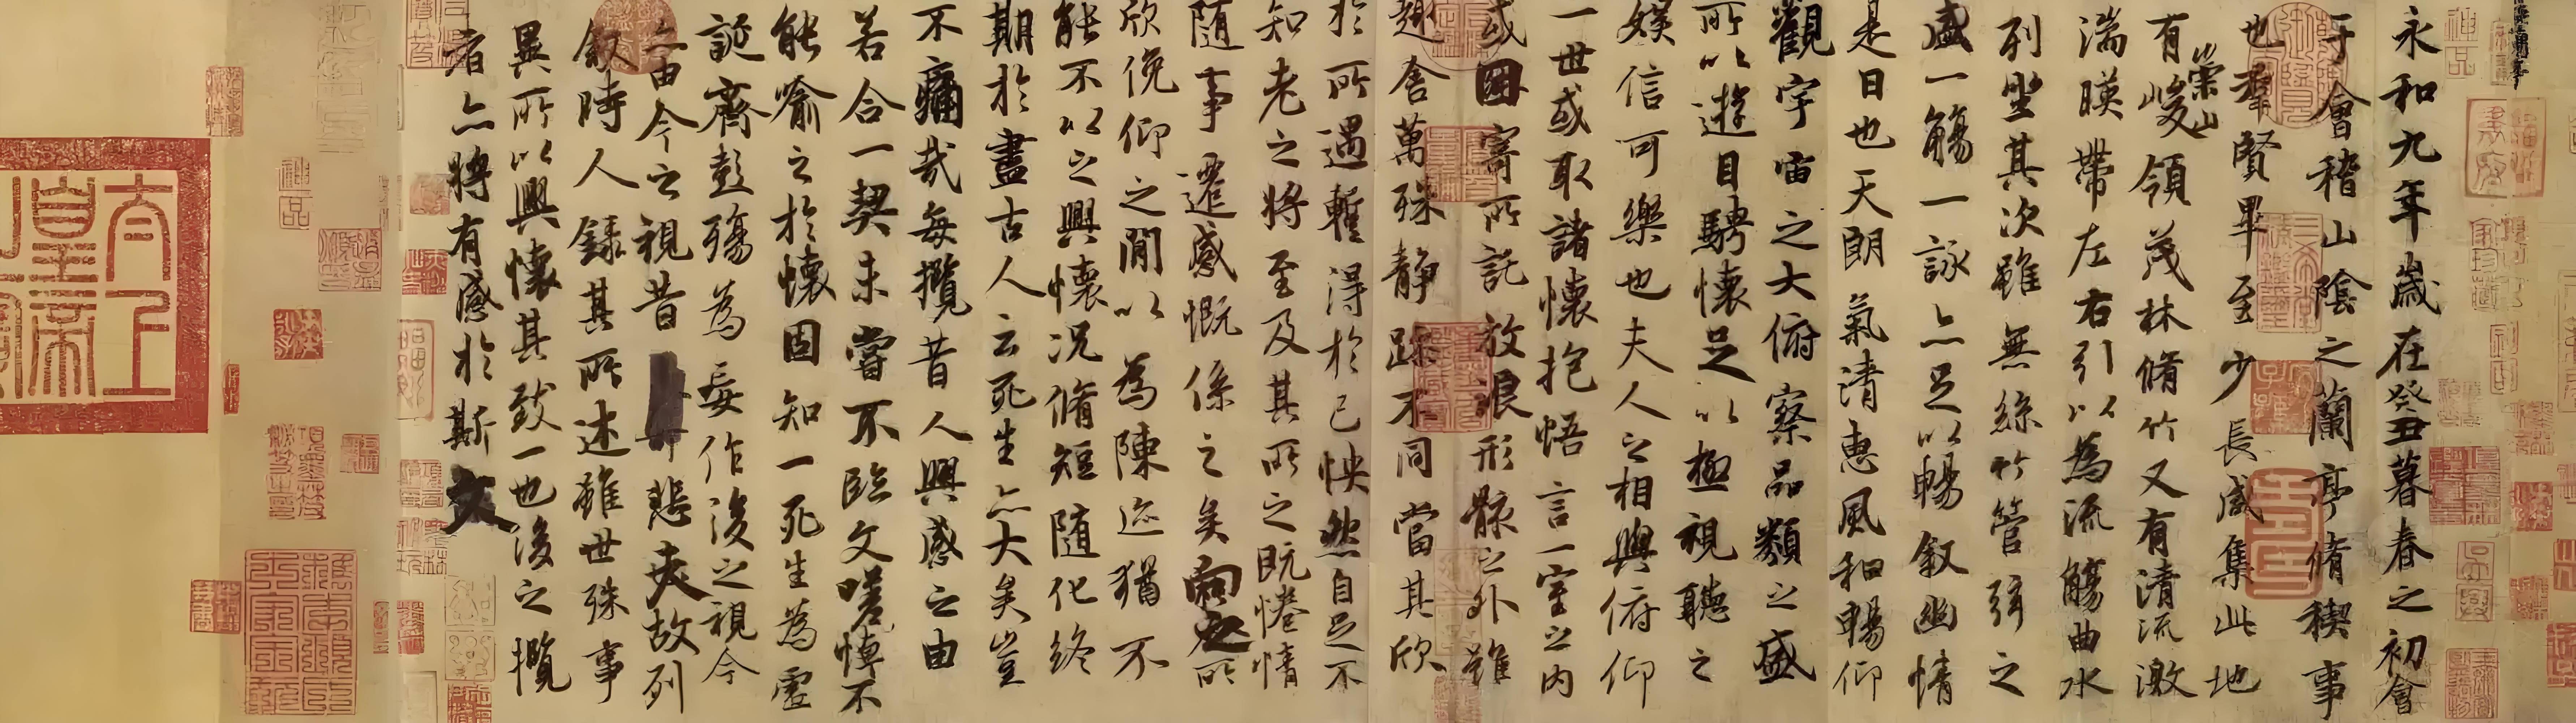 永和九年歲在癸丑暮春之初會
于會稽山陰之蘭亭脩稧事
也羣賢畢至少長咸集此地
有崇山峻領茂林脩竹又有清流激
湍暎帶左右引以為流觴曲水
列坐其次雖無絲竹管弦之
盛一觴一詠亦足以暢叙幽情
是日也天朗氣清惠風和暢仰
觀宇宙之大俯察品類之盛
所以遊目騁懷足以極視聽之
娛信可樂也夫人之相與俯仰
一世或取諸懷抱悟言一室之內
或因寄所託放浪形骸之外雖
趣舍萬殊靜躁不同當其欣
於所遇暫得於己怏然自足不
知老之將至及其所之既惓情
隨事遷感慨係之矣向之所
欣俛仰之閒以為陳迹猶不
能不以之興懷況脩短隨化終
期於盡古人云死生亦大矣豈
不痛哉每攬昔人興感之由
若合一契未嘗不臨文嗟悼不
能喻之於懷固知一死生為虛
誕齊彭殤為妄作後之視今
亦由今之視昔悲夫故列
叙時人錄其所述雖世殊事
異所以興懷其致一也後之攬
者亦將有感於斯文
太上
皇帝